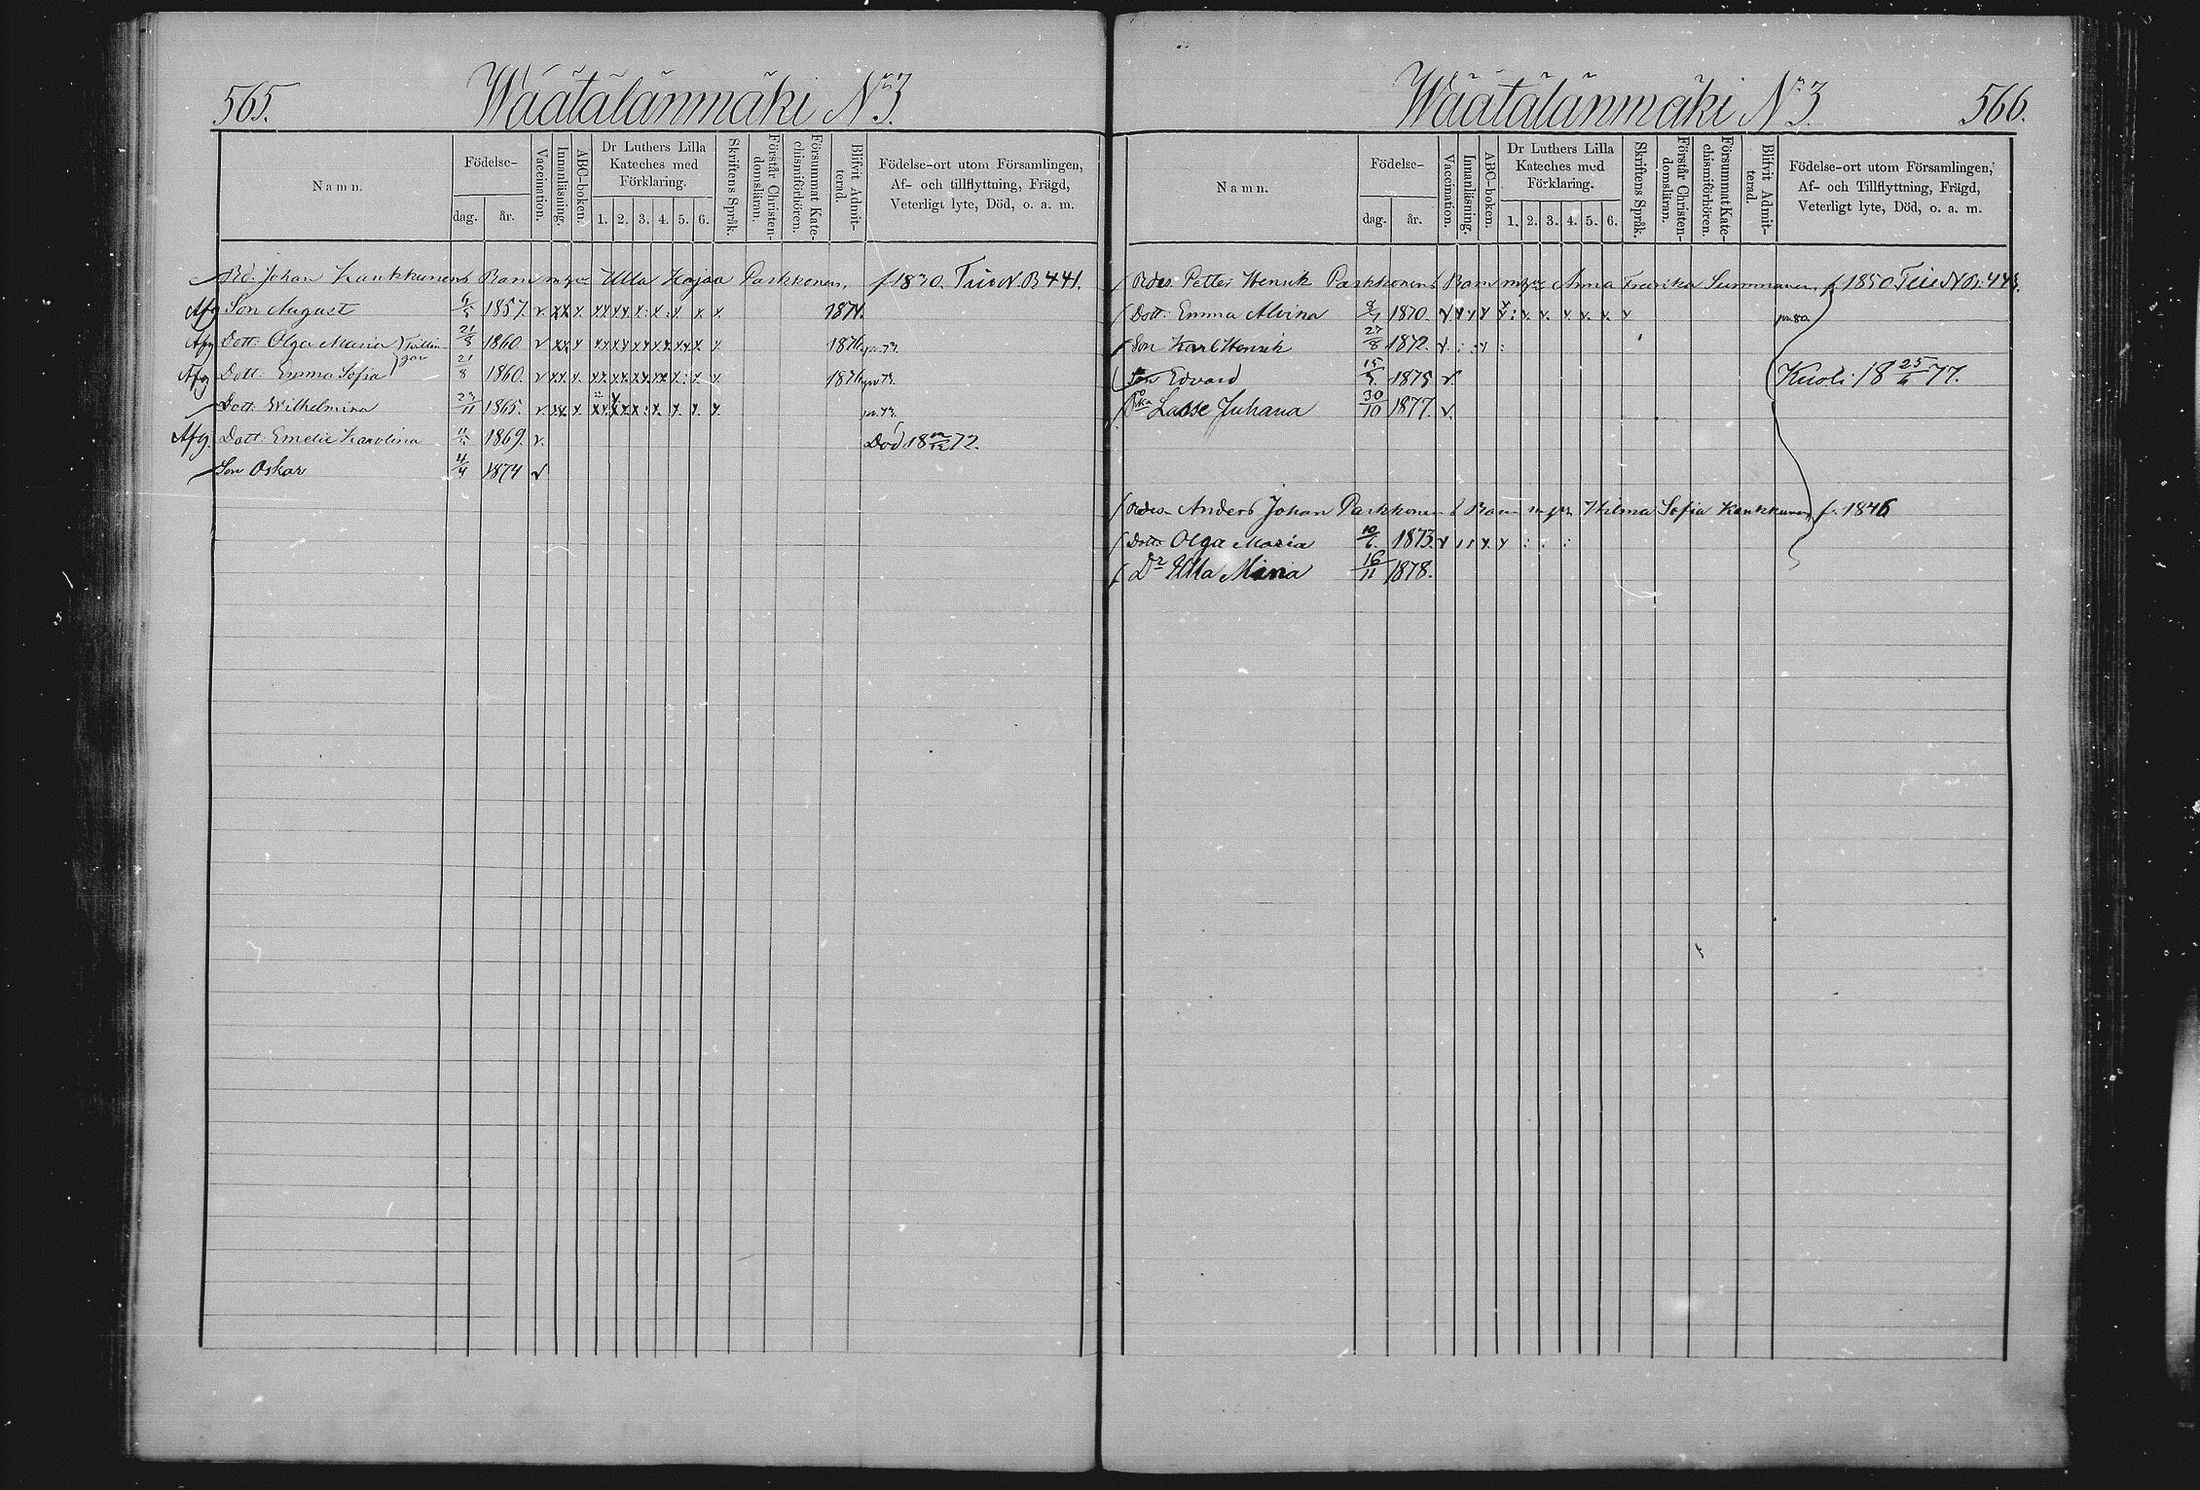 565. Wäätälänmäki No 3.
Namn. Födelse- dag. år. Vaccination. Innanläsning. ABC-boken. Dr Luthers Lilla Kateches med Förklaring. 1. 2. 3. 4. 5. 6. Skriftens Språk. Förstår Christendomsläran. Försummat Katechismiförhören. Blifvit Admitterad. Födelse-ort utom Församlingen, Af- och tillflyttning, Frägd, Veterligt lyte, Död, o. a. m.
Bd. Johan Kankkunens Barn Ulla Kajsa Parkkonen, f 1830. B 441.
Afg Son August 6/5 1857. v 1874.
Afg Dott: Olga Maria Tvillingar 21/8 1860 v 1876
Afg Dott: Emma Sofia 21/8 1860. v 1876
Dott: Wilhelmina 23/11 1865. v
Afg. Dott: Emelie Karolina 1869. v. Död 18 72.
Son Oskar 4/4 1874 v
Wäätälänmäki No 3. 566.
Namn. Födelse- dag. år. Vaccination. Innanläsning. ABC-boken. Dr Luthers Lilla Kateches med Förklaring. 1. 2. 3. 4. 5. 6. Skriftens Språk. Förstår Christendomsläran. Försummat Katechismiförhören. Blifvit Admitterad. Födelse-ort utom Församlingen, Af- och Tillflyttning, Frägd, Veterligt lyte, Död, o. a. m.
Petter Henrik Parkkonens Barn Anna Fredrika Summanen f 1850
Dott: Emma Alvina 1870. v
Son Karl Henrik 27/8 1872. v
Son Edvard 1875 v Kuoli 18 25/6 77.
Lasse Juhana 30/10 1877. v
Anders Johan Parkkonens Barn Hilma Sofia Kankkunen f. 1846
Dott: Olga Maria 10/6. 1873
Dr Ulla Miina 16/11 1878.